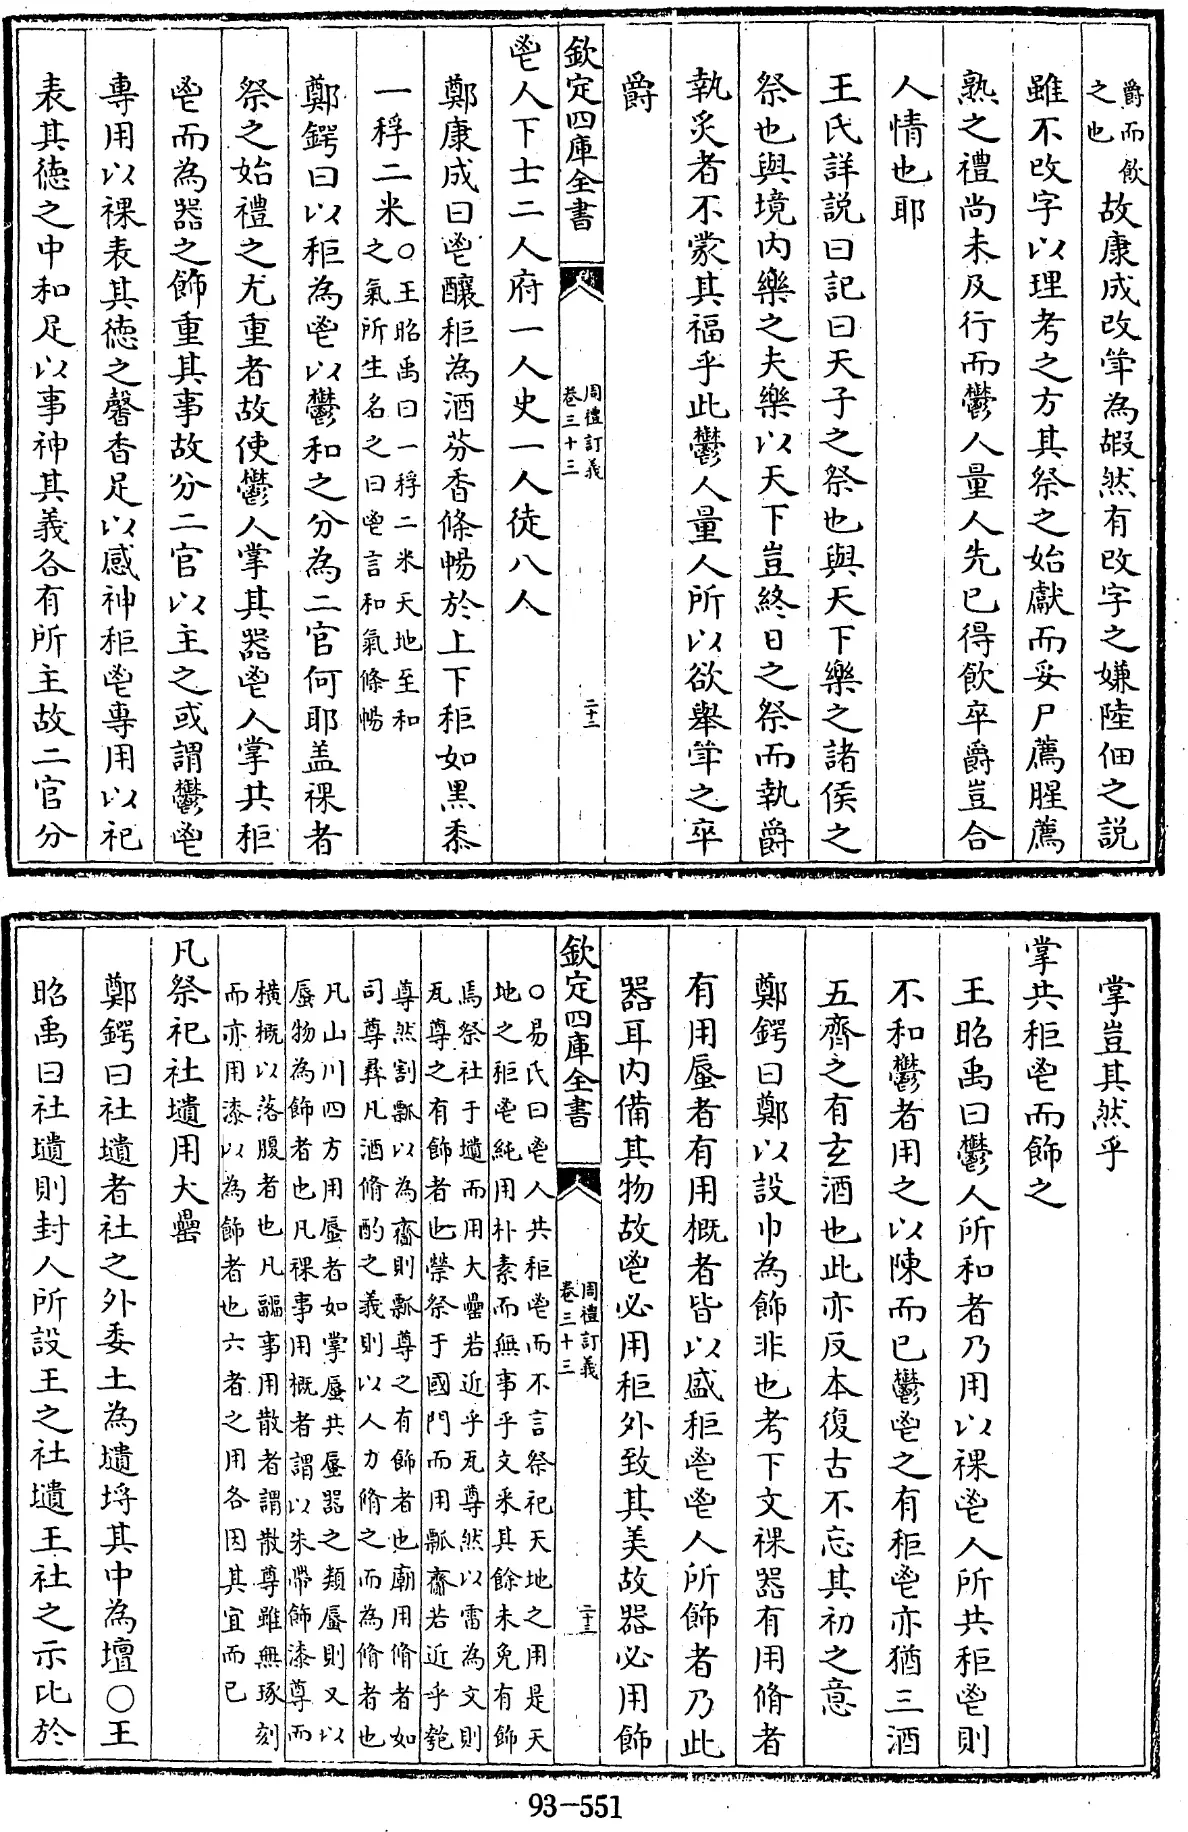 爵而飲
之也
故康成改斚為嘏然有改字之嫌陸佃之説
雖不改字以理考之方其祭之始獻而妥尸薦腥薦
熟之禮尚未及行而鬱人量人先已得飲卒爵豈合
人情也耶
王氏詳説曰記曰天子之祭也與天下樂之諸侯之
祭也與境内樂之夫樂以天下豈終日之祭而執爵
執炙者不蒙其福乎此鬱人量人所以欲舉斚之卒
爵
欽定四庫全書
周禮訂義
卷三十三
二十二
鬯人下士二人府一人史一人徒八人
鄭康成曰鬯釀秬為酒芬香條暢於上下秬如黑黍
一稃二米
○王昭禹曰一稃二米天地至和
之氣所生名之曰鬯言和氣條暢
鄭鍔曰以秬為鬯以鬱和之分為二官何耶盖祼者
祭之始禮之尤重者故使鬱人掌其器鬯人掌共秬
鬯而為器之飾重其事故分二官以主之或謂鬱鬯
專用以祼表其德之馨香足以感神秬鬯專用以祀
表其德之中和足以事神其義各有所主故二官分
掌豈其然乎
掌共秬鬯而飾之
王昭禹曰鬱人所和者乃用以祼鬯人所共秬鬯則
不和鬱者用之以陳而已鬱鬯之有秬鬯亦猶三酒
五齊之有玄酒也此亦反本復古不忘其初之意
鄭鍔曰鄭以設巾為飾非也考下文祼器有用脩者
有用蜃者有用概者皆以盛秬鬯鬯人所飾者乃此
器耳内備其物故鬯必用秬外致其美故器必用飾
欽定四庫全書
周禮訂義
卷三十三
二十三
○易氏曰鬯人共秬鬯而不言祭祀天地之用是天
地之秬鬯純用朴素而無事乎文采其餘未免有飾
焉祭社于壝而用大罍若近乎瓦尊然以雷為文則
瓦尊之有飾者也禜祭于國門而用瓢齎若近乎匏
尊然割瓢以為齎則瓢尊之有飾者也廟用脩者如
司尊彞凡酒脩酌之義則以人力脩之而為脩者也
凡山川四方用蜃者如掌蜃共蜃器之類蜃則又以
蜃物為飾者也凡祼事用概者謂以朱帶飾漆尊而
横概以落腹者也凡疈事用散者謂散尊雖無琢刻
而亦用漆以為飾者也六者之用各因其宜而已
凡祭祀社壝用大罍
鄭鍔曰社壝者社之外委土為壝埒其中為壇○王
昭禹曰社壝則封人所設王之社壝王社之示比於
93-551